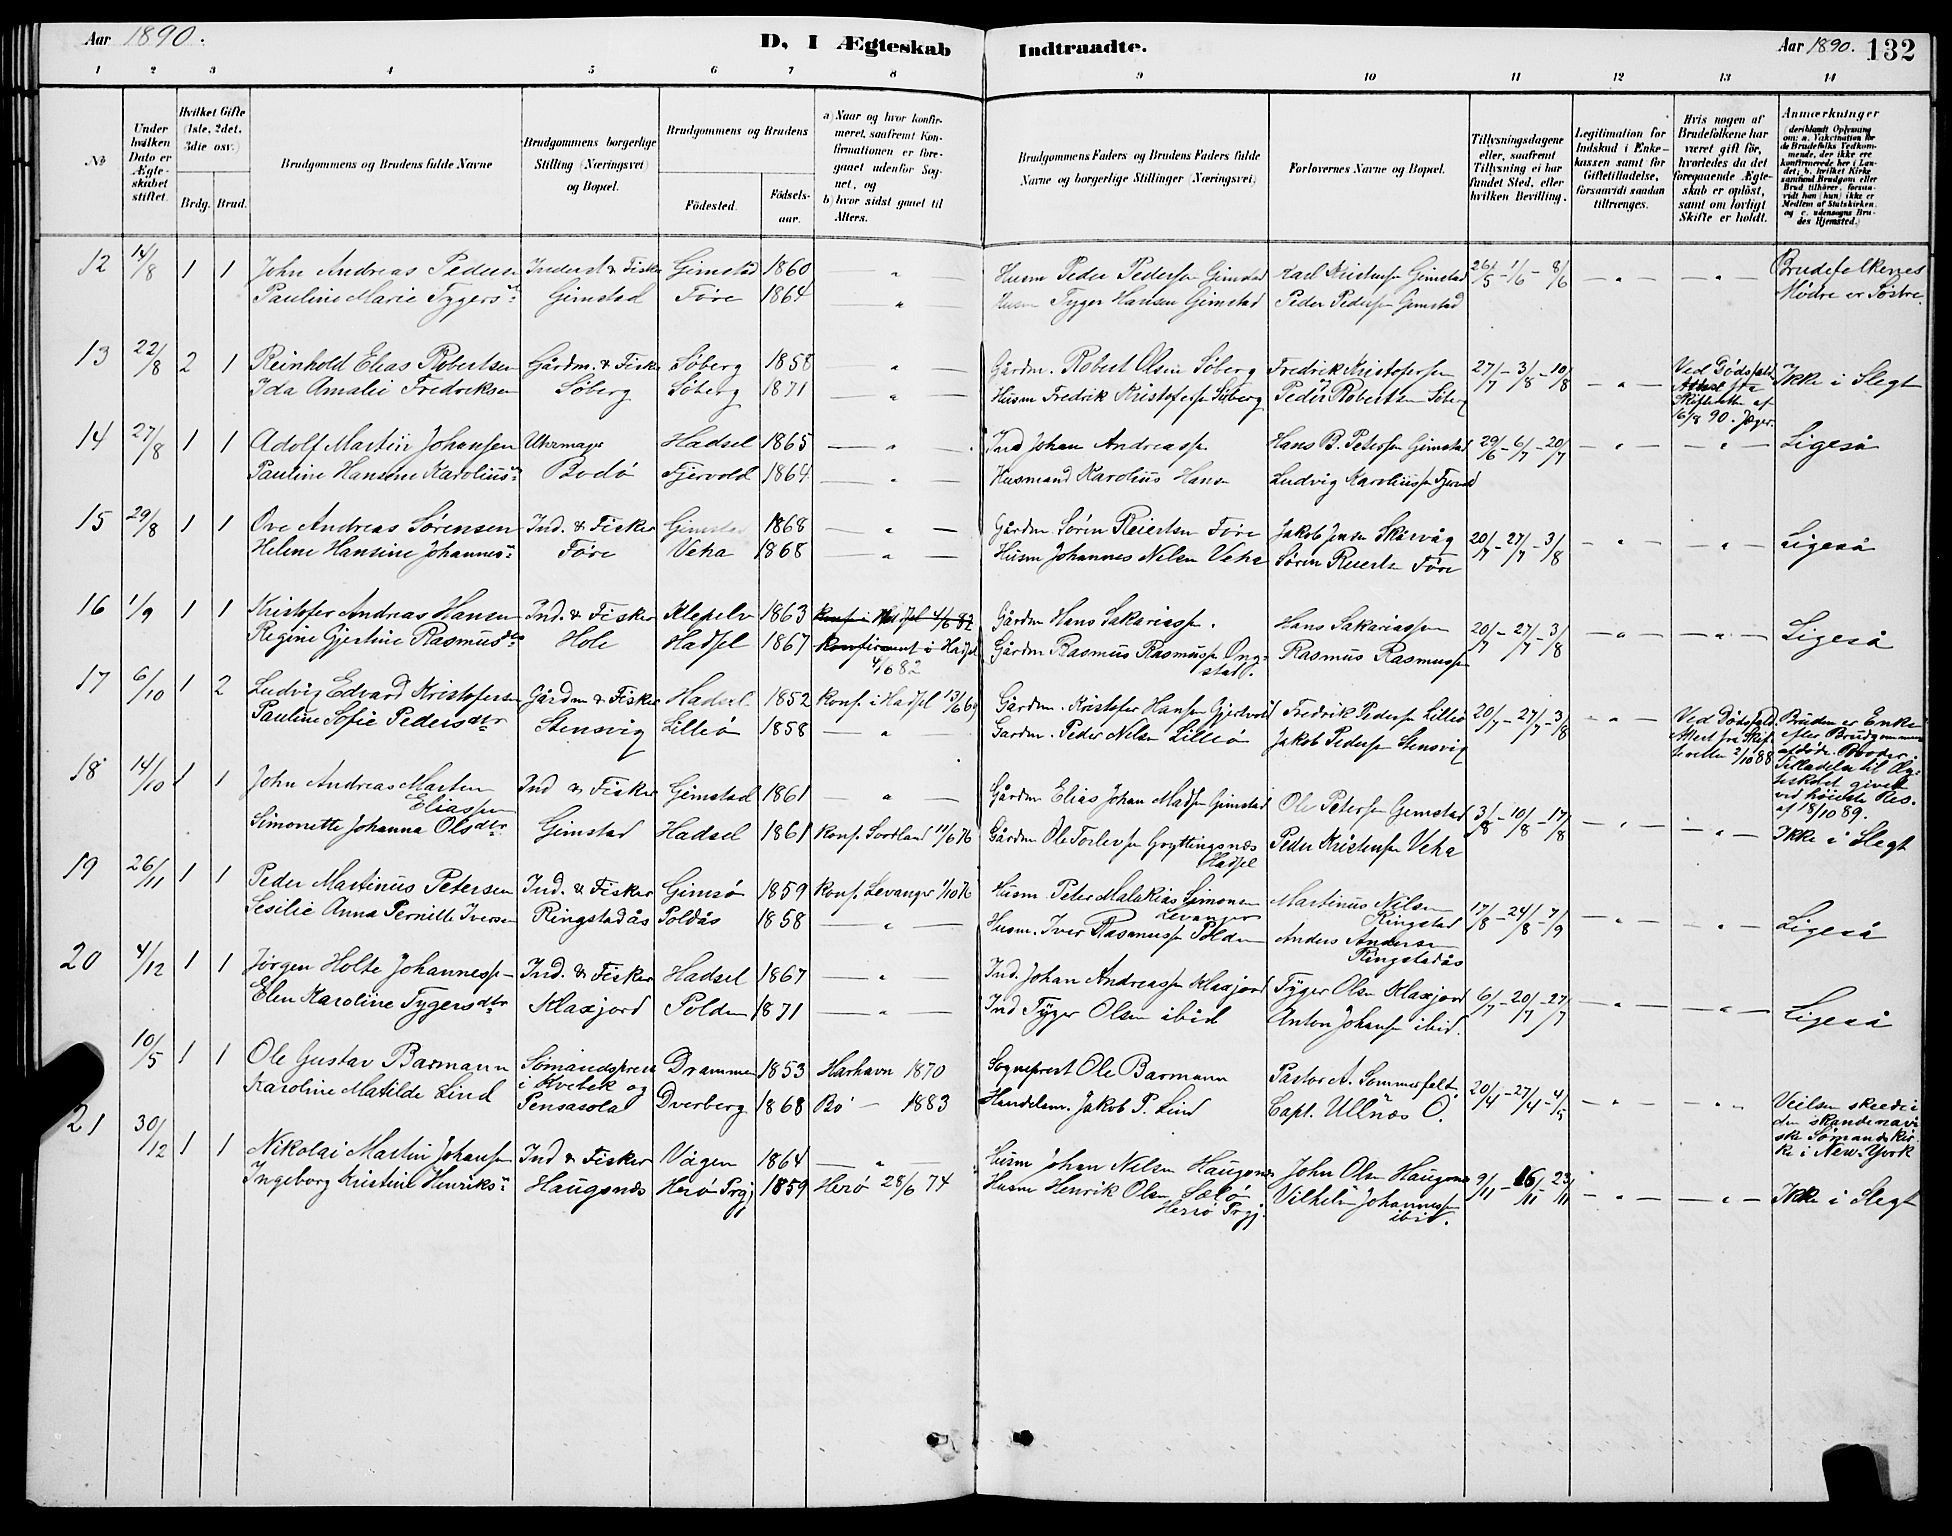 Aar 1890.
D. I Ægteskab Indtraadte.
Aar 1890. 132
1 2 3 4 5 6 7 8 9 10 11 12 13 14
No
Under hvilken Dato er Ægteskabet stiftet.
Hvilket Gifte (1ste, 2det, 3die osv.)
Brdg. Brud.
Brudgommens og Brudens fulde Navne
Brudgommens borgerlige Stilling (Næringsvei) og Bopæl.
Brudgommens og Brudens
Fødested.
Fødselsaar.
a) Naar og hvor konfirmeret, saafremt Konfirmationen er foregaaet udenfor Sognet, og
b) hvor sidst gaaet til Alters.
Brudgommens Faders og Brudens Faders fulde Navne og borgerlige Stillinger (Næringsvei)
Forlovernes Navne og Bopæl.
Tillysningsdagene eller, saafremt Tillysning ei har fundet Sted, efter hvilken Bevilling.
Legitimation for Indskud i Enkekassen samt for Giftetilladelse, forsaavidt saadan tiltrænges.
Hvis nogen af Brudefolkene har været gift før, hvorledes da det foregaaende Ægteskab er opløst, samt om lovligt Skifte er holdt.
Anmærkninger
(deriblandt Oplysning om: a. Vakcination for de Brudefolks Vedkommende, der ikke ere konfirmerede her i Landet; b. hvilket Kirkesamfund Brudgom eller Brud tilhører, forsaavidt han (hun) ikke er Medlem af Statskirken, og c. udensogns Brudes Hjemsted.)
12 14/8 1 1 John Andreas Pedersen Inderst & Fisker Gimstad 1860 — " — Husm Peder Pedersen Gimstad Karl Kristensen Gimstad 26/5 - 1/6 - 8/6 — " — — " — Brudefolkenes
Pauline Marie Tygersdtr Gimstad Føre 1864 — " — Husm Tyger Hansen Gimstad Peder Pedersen Gimstad Mødre er Søstre.
13 22/8 2 1 Reinhold Elias Robertsen Gårdm. & Fisker Søberg 1858 — " — Gårdm. Robert Olsen Søberg Fredrik Kristofersen 27/7 - 3/8 - 10/8 — " — Ved Dødsfald Ikke i Slegt
Ida Amalie Fredriksen Søberg Søberg 1871 — " — Husm Fredrik Kristofersen Søberg Peder Robertsen Søberg Attest fra
Skifteretten af
6/8 90. Jager.
14 27/8 1 1 Adolf Martin Johansen Uhrmager Hadsel 1865 — " — Ind Johan Andreassen Hans B. Petersen Gimstad 29/6 - 6/7 - 20/7 — " — — " — Ligeså
Pauline Hansine Karoliusdtr Bodø Fjervold 1864 — " — Husmand Karolius Hansen Ludvig Karoliussen Fjervold
15 29/8 1 1 Ove Andreas Sørensen Ind. & Fisker Gimstad 1868 — " — Gårdm Søren Reiertsen Føre Jakob Jensen Skårvåg 20/7 - 27/7 - 3/8 — " — — " — Ligeså
Helene Hansine Johannesdtr Føre Veha 1868 — " — Husm Johannes Nilsen Veha Søren Reiertsen Føre
16 1/9 1 1 Kristofer Andreas Hansen Ind. & Fisker Klepelv 1863 Konf. i Hadsel 4/6 82 Gårdm Hans Sakariassen. Hans Sakariassen 20/7 - 27/7 - 3/8 — " — — " — Ligeså
Regine Gjertine Rasmusdtr Hole Hadsel 1867 Konfirmert i Hadsel Gårdm Rasmus Rasmussen Ong- Rasmus Rasmussen
4/6 82 stad.
17 6/10 1 2 Ludvig Edvard Kristofersen Gårdm & Fisker Hadsel 1852 Konf. i Hadsel 13/6 69 Gårdm. Kristofer Hansen Fredrik Pedersen Lilleø 20/7 - 27/7 - 3/8 — " — Ved Dødsfald. Bruden er Enke
Pauline Sofie Pedersdtr Stensvig Lilleø 1858 — " — Gårdm. Peder Nilsen Lilleø Jakob Pedersen Stensvig Attest fra Skif- efter Brudgommens
teretten 2/10 88 afdøde Broder.
Tilladelse til Æg-
teskabet givet
ved høieste Res.
af 18/10 89.
18 14/10 1 1 John Andreas Marten Ind & Fisker Gimstad 1861 — " — Gårdm Elias Johan Madsen Gimstad Ole Petersen Gimstad 3/8 - 10/8 - 17/8 — " — — " — Ikke i Slegt
Eliassen
Simonette Johanna Olsdtr Gimstad Hadsel 1861 Konf. Sortland 11/6 76 Gårdm Ole Torlevsen Gryttingsnæs Peder Kristensen Veha
Hadsel
19 26/11 1 1 Peder Martinus Petersen Ind. & Fisker Gimsø 1859 Konf. Levanger 1/10 76 Husm Peter Malakias Simonsen Martinus Nilsen 17/8 - 24/8 - 7/9 — " — — " — Ligeså
Levanger Ringstad
Sesilie Anna Pernille Iversen Ringstadås Poldås 1858 — " — Husm. Iver Rasmussen Polden Anders Andersen
Ringstadås
20 4/12 1 1 Jørgen Holte Johannessen Ind. & Fisker Hadsel 1867 — " — Ind. Johan Andreassen Klaxjord Tyger Olsen Klaxjord 6/7 - 20/7 - 27/7 — " — — " — Ligeså
Elen Karoline Tygersdtr Klaxjord Polden 1871 — " — Ind Tyger Olsen ibid Anton Johansen ibid.
10/5 1 1 Ole Gustav Barmann Sømandsprest Drammen 1853 Harhavn 1870 Sogneprest Ole Barmann Pastor A. Sommerfelt 20/4 - 27/4 - 4/5 — " — — " — Veilsen skeede i
i Kvebek og
Karoline Matilde Lind Pensasola Dverberg 1868 Bø — 1883 Handelsm. Jakob P. Lind Capt. Ullnæs O. den skandinavi-
ske Sømandskir-
ke i New-York
21 30/12 1 1 Nikolai Martin Johansen Ind & Fisker Vågen 1864 — " — Husm Johan Nilsen Haugsnes John Olsen Haugsnes 9/11 - 16/11 - 23/11 — " — — " — Ikke i Slegt
Ingeborg Kristine Henriksdtr Haugsnæs Herø Prgj 1859 Herø 28/6 74 Husm Henrik Olsen Sælø Vilhelm Johannessen
Herø Prgj. ibid.